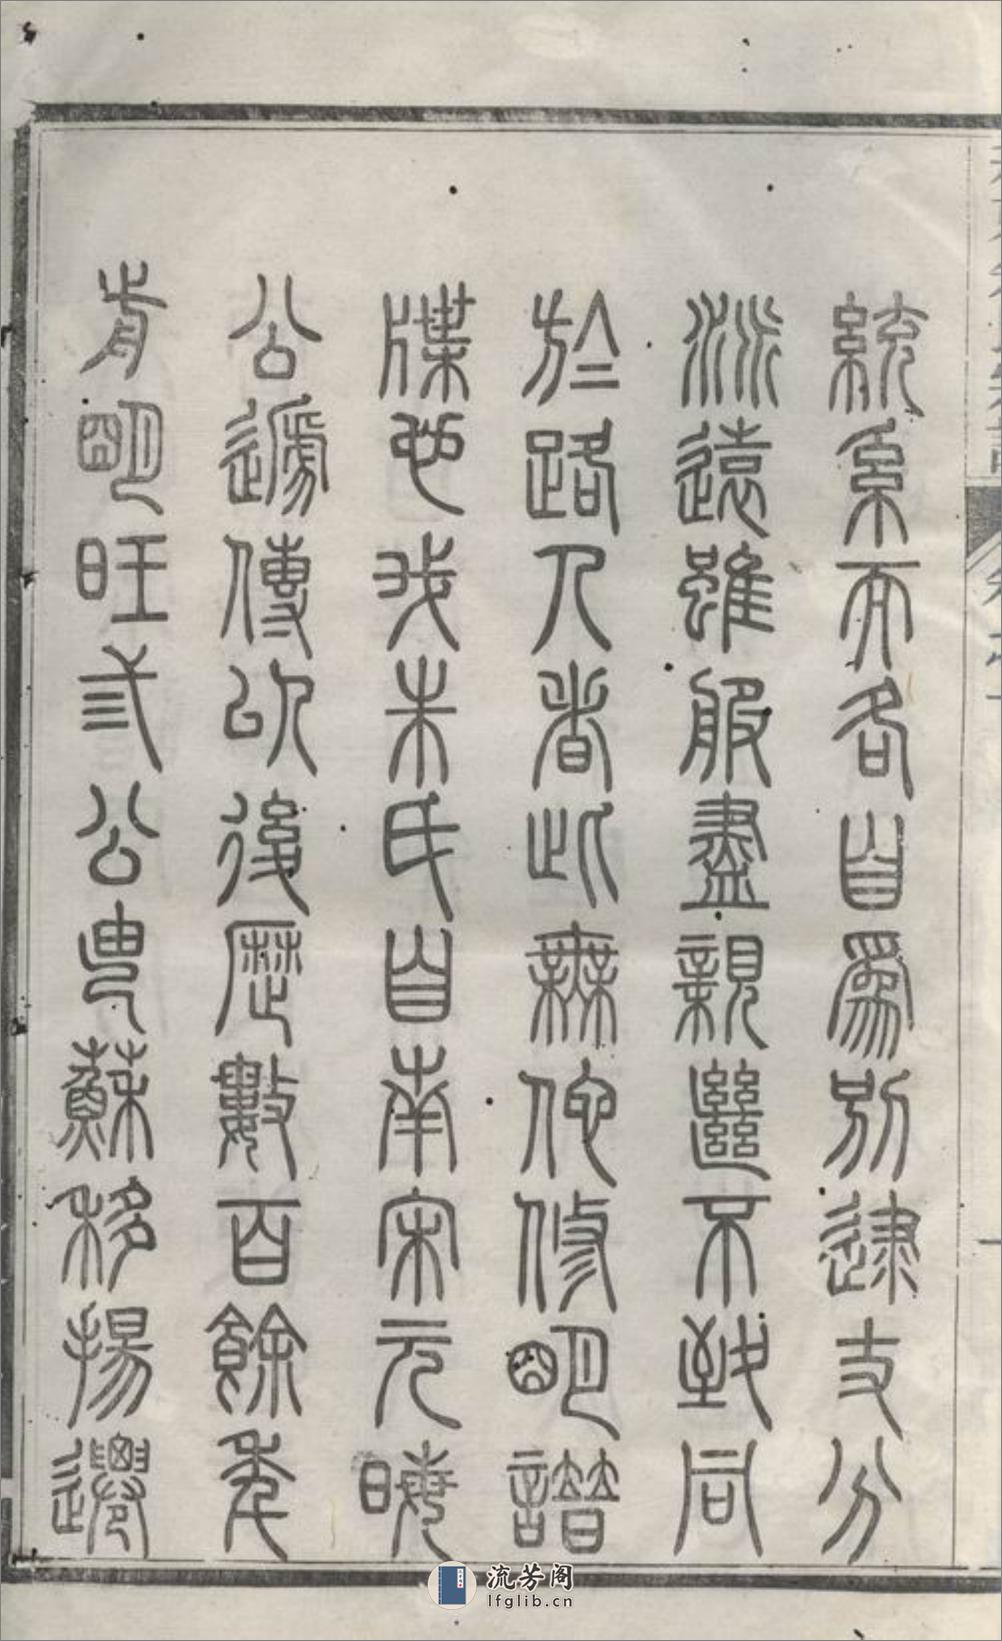 統系而各自為別逮支分
派遠雖服盡親絕不致同
於路人者此無他修明譜
牒也我朱氏自南宋元曉
公遞傳以後歷數百餘年
有明旺弍公由蘇移揚遷
流芳阁
lfglib.cn